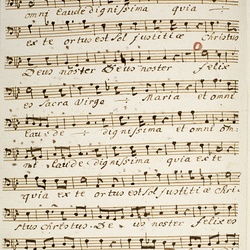 omni laude dignissima quia
ex te ortus est sol justitiæ Christus
Deus noster Deus noster felix
es Sacra Virgo Maria et omni
laude dignissima et omni om
ni laude dignissima quia ex te
quia ex te ortus est sol justitiæ Chri
stus Christus De us noster felix es